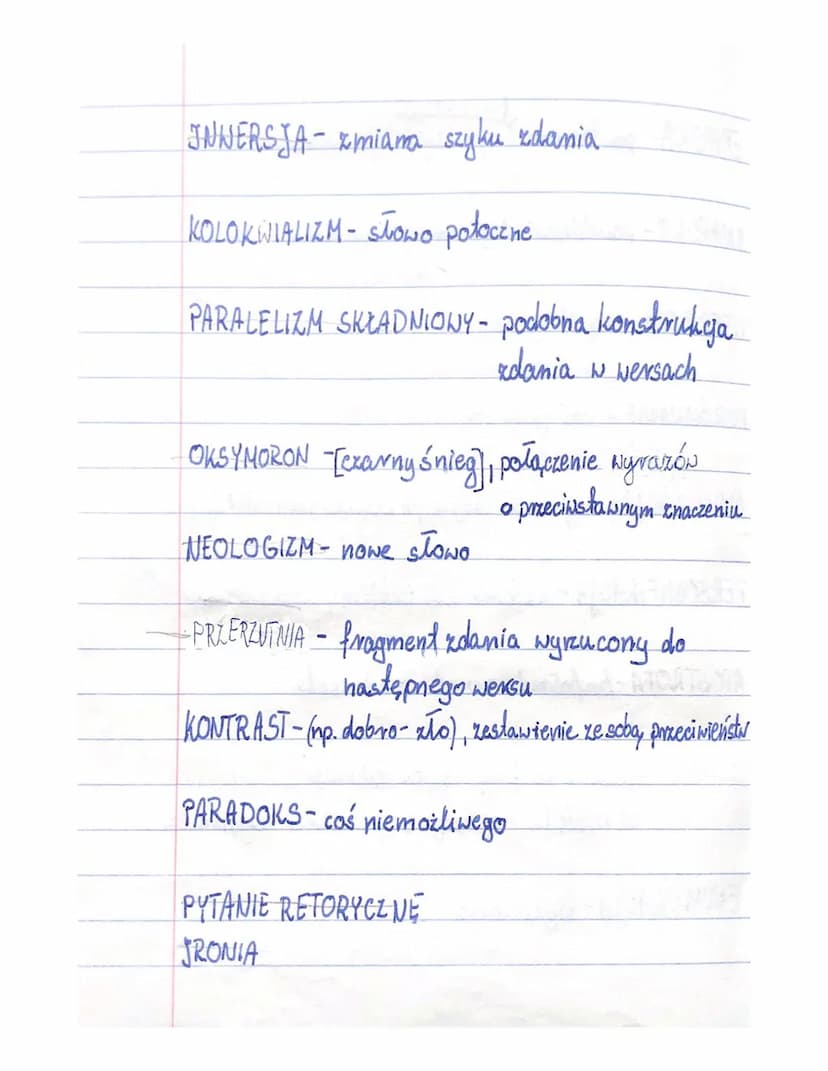 INWERSJA - zmiana szyku zdania
KOLOKWIALIZM - słowo potoczne
PARALELIZM SKŁADNIOWY - podobna konstrukcja
zdania w wersach
OKSYMORON - [czarny śnieg], połączenie wyrazów
o przeciwstawnym znaczeniu
NEOLOGIZM - nowe słowo
PRZERZUTNIA - fragment zdania wyrzucony do
następnego wersu
KONTRAST - (np. dobro - zło), zestawienie ze sobą przeciwieństw
PARADOKS - coś niemożliwego
PYTANIE RETORYCZNE
IRONIA